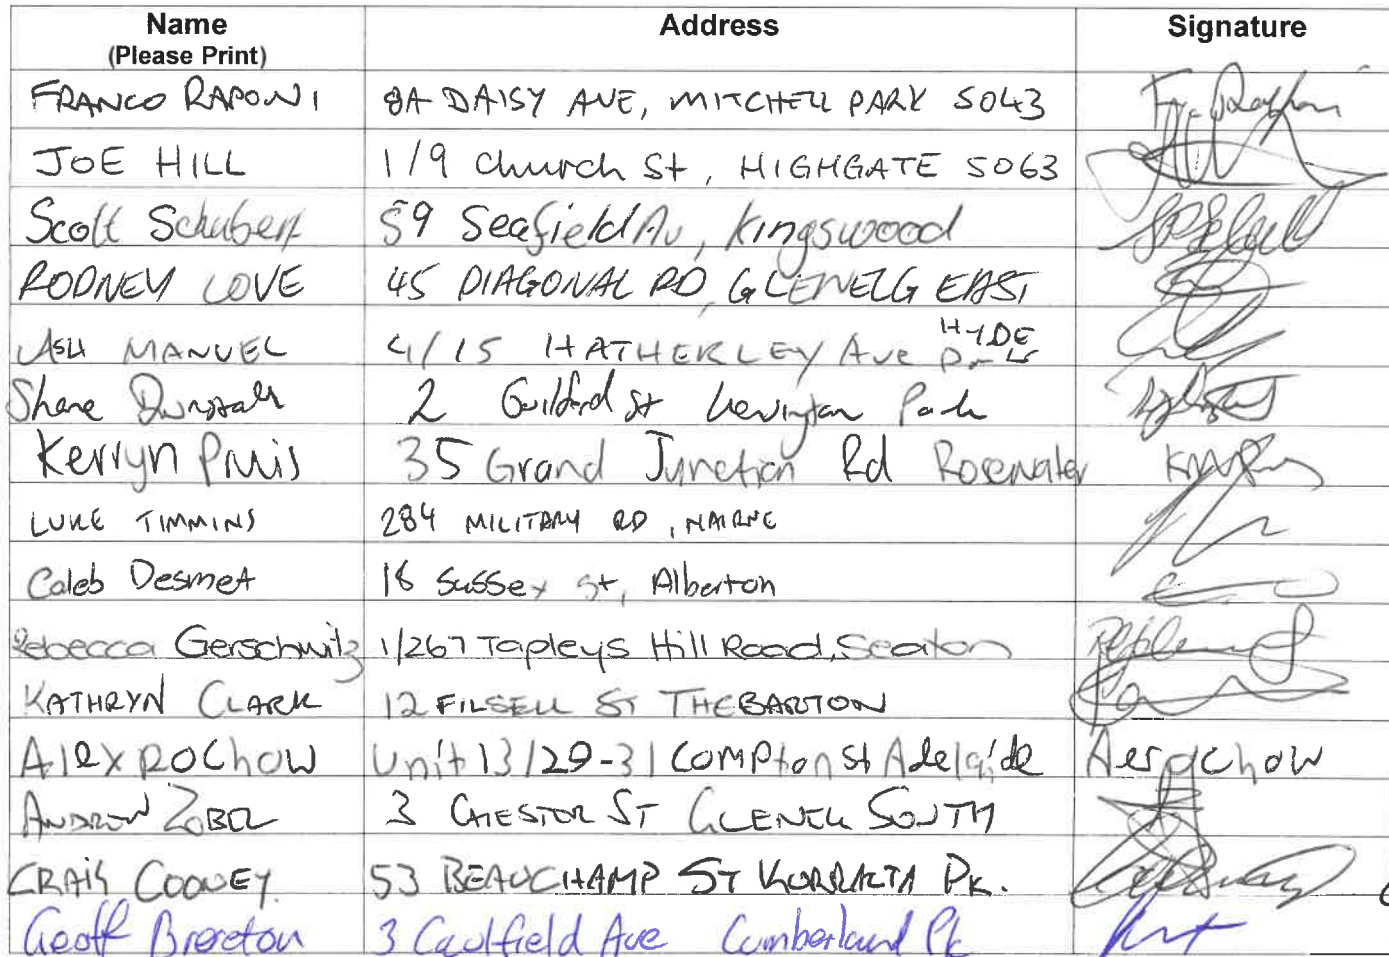 Name Address Signature
(Please Print)
FRANCO RAPONI 8A DAISY AVE, MITCHELL PARK 5043
JOE HILL 1/9 Church St, HIGHGATE 5063
Scott Schubert 59 Seafield Av, Kingswood
RODNEY LOVE 45 DIAGONAL RD, GLENELG EAST
ASH MANUEL 4/15 HATHERLEY Ave HYDE Park
Shane Dunstall 2 Guilford St Park
Kerryn 35 Grand Junction Rd Rosewater
LUKE TIMMINS 284 MILITARY RD, NAIRNE
Caleb Desmet 18 Sussex St, Alberton
Rebecca Gerschwitz 1/267 Tapleys Hill Road, Seaton
KATHRYN CLARK 12 FILSELL ST THEBARTON
Alex ROChOW Unit 13/29-31 Compton st Adelaide Aerochow
ANDREW ZOBEL 3 ST GLENELG SOUTH
CRAIG COONEY. 53 BEAUCHAMP ST KURRALTA PK.
Geoff Brereton 3 Caulfield Ave Cumberland Pk